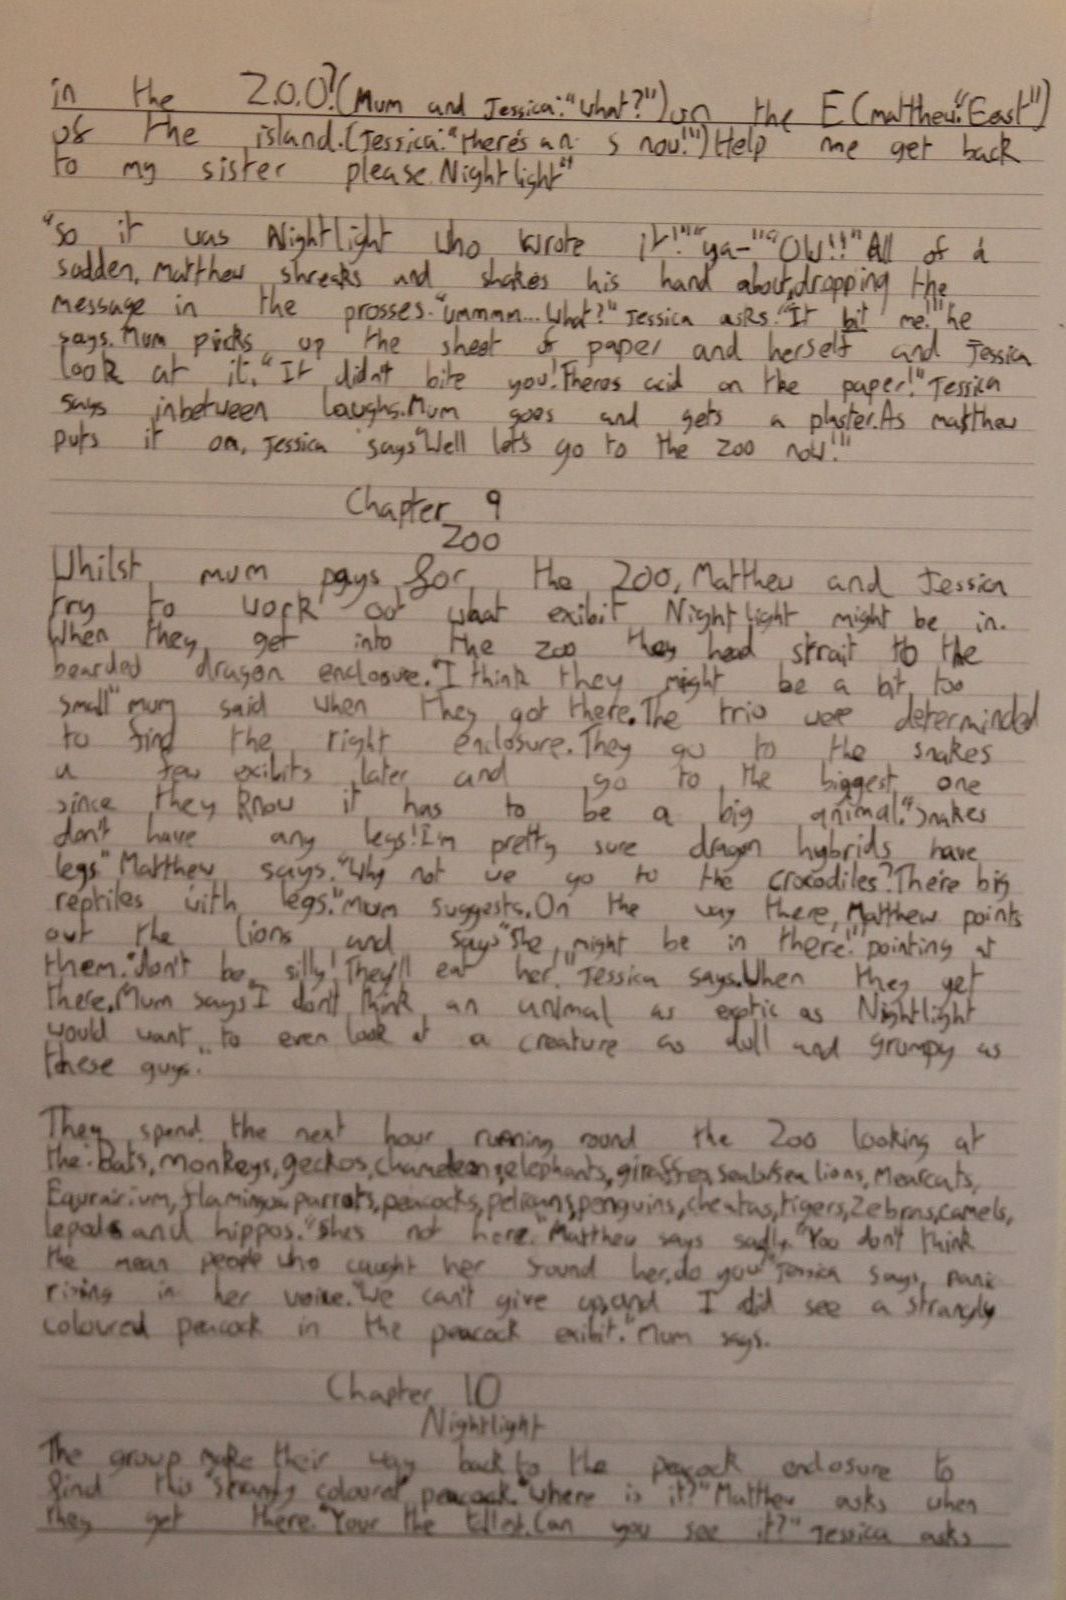 in the Z.O.O?(Mum and Jessica:"What?")on the E(matthew:"East")
of the island.(Jessica:"there's an s now!")Help me get back
to my sister please.Nightlight"
"So it was Nightlight who wrote it!""ya-""OW!!!"All of a
sudden, matthew shreaks and shakes his hand about,dropping the
message in the prosses."ummmm...What?" Jessica asks."It bit me!"he
says.Mum picks up the sheet of paper and herself and Jessica
look at it."It didn't bite you!Theres acid on the paper!"Jessica
says inbetween laughs.Mum goes and gets a plaster.As matthew
puts it on, Jessica says"Well let's go to the zoo now!"
Chapter 9
Zoo
Whilst mum pays for the zoo, Matthew and Jessica
try to work out what exibit Nightlight might be in.
When they get into the zoo they head strait to the
bearded dragon enclosure."I think they might be a bit too
small" mum said when they got there.The trio were determinded
to find the right enclosure.They go to the snakes
a few exibits later and go to the biggest one
since they know it has to be a big animal."Snakes
don't have any legs!I'm pretty sure dragon hybrids have
legs" Matthew says."Why not we go to the crocodiles?There big
reptiles with legs."Mum suggests.On the way there, Matthew points
out the lions and says"She might be in there!"pointing at
them."don't be silly!They'll eat her."Jessica says.When they get
there,Mum says"I don't think an animal as exotic as Nightlight
would want to even look at a creature as dull and grumpy as
these guys."
They spend the next hour running round the zoo looking at
the:Bats,monkeys,geckos,chameleons,elephants,giraffes,seals/sea lions, Mearcats,
Equrairium,flamingos,parrots,peacocks,pelicans,penguins,cheatas,tigers,Zebras,camels,
lepods and hippos."Shes not here."Matthew says sadly."You don't think
the mean people who caught her found her,do you"Jessica says, panic
rising in her voice."We can't give up,and I did see a strangly
coloured peacock in the peacock exibit."Mum says.
Chapter 10
Nightlight
The group make their way back to the peacock enclosure to
find this "strangly coloured peacock."Where is it?"Matthew asks when
they get there."Your the tallest.Can you see it?" Jessica asks